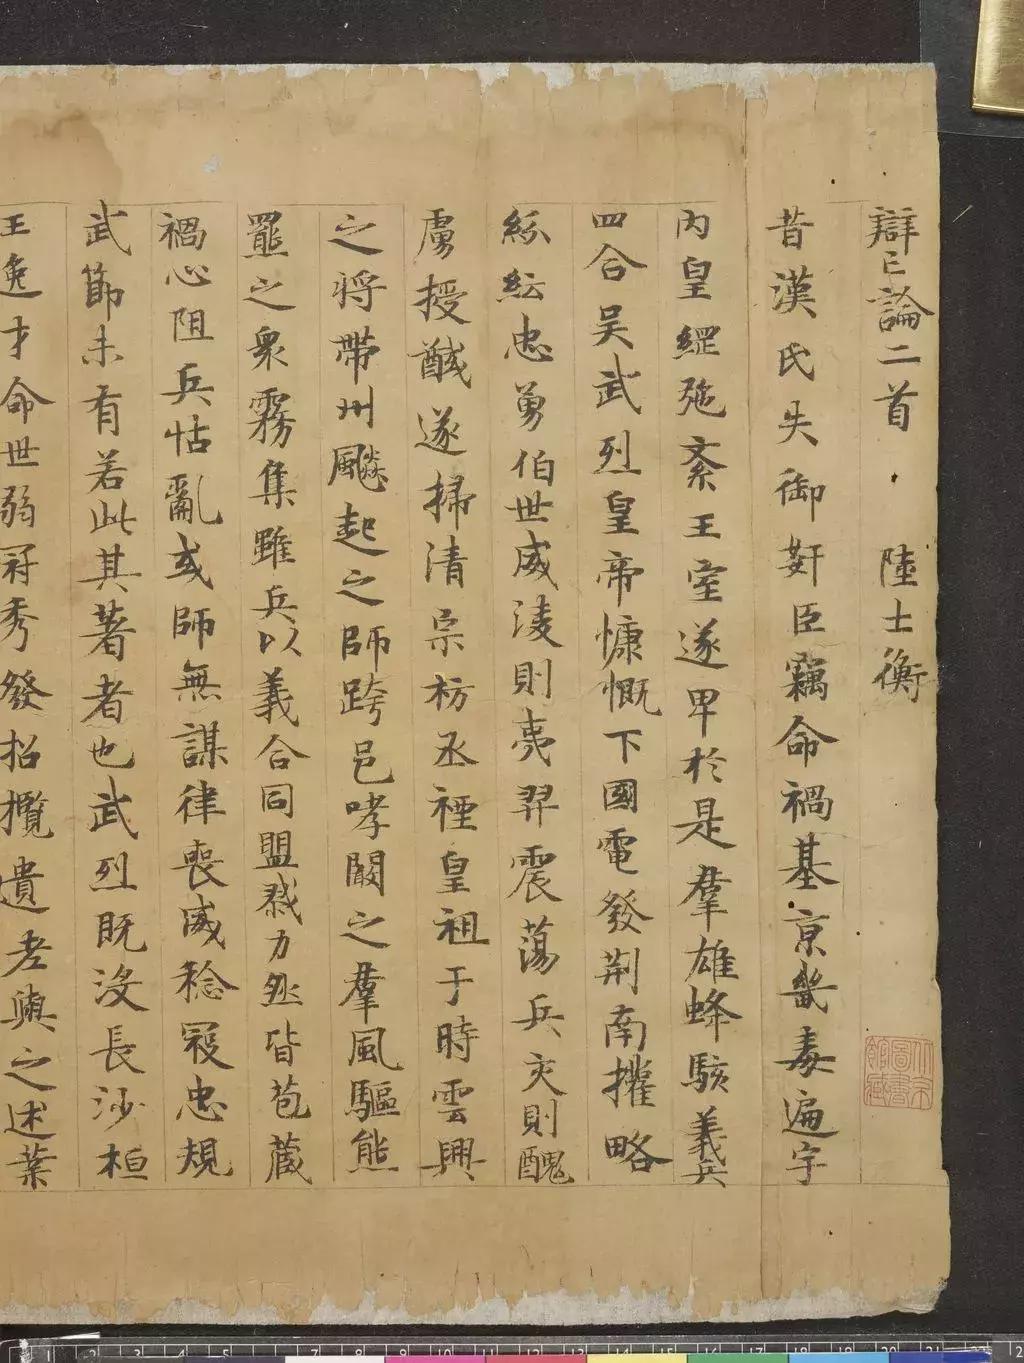 辯亡論二首 陸士衡
昔漢氏失御奸臣竊命禍基京畿毒遍宇
内皇綱弛紊王室遂卑於是羣雄蜂駭義兵
四合吴武烈皇帝慷慨下國電發荆南權略
紛紜忠勇伯世威淩則夷羿震蕩兵交則醜
虜授馘遂掃清宗枋丞禋皇祖于時雲興
之將帶州飈起之師跨邑哮闞之羣風驅熊
羆之衆霧集雖兵以義合同盟勠力然皆苞藏
禍心阻兵怙亂或師無謀律喪威稔寇忠規
武節未有若此其著者也武烈既没長沙桓
王逸才命世弱冠秀發招攬遺老與之述業